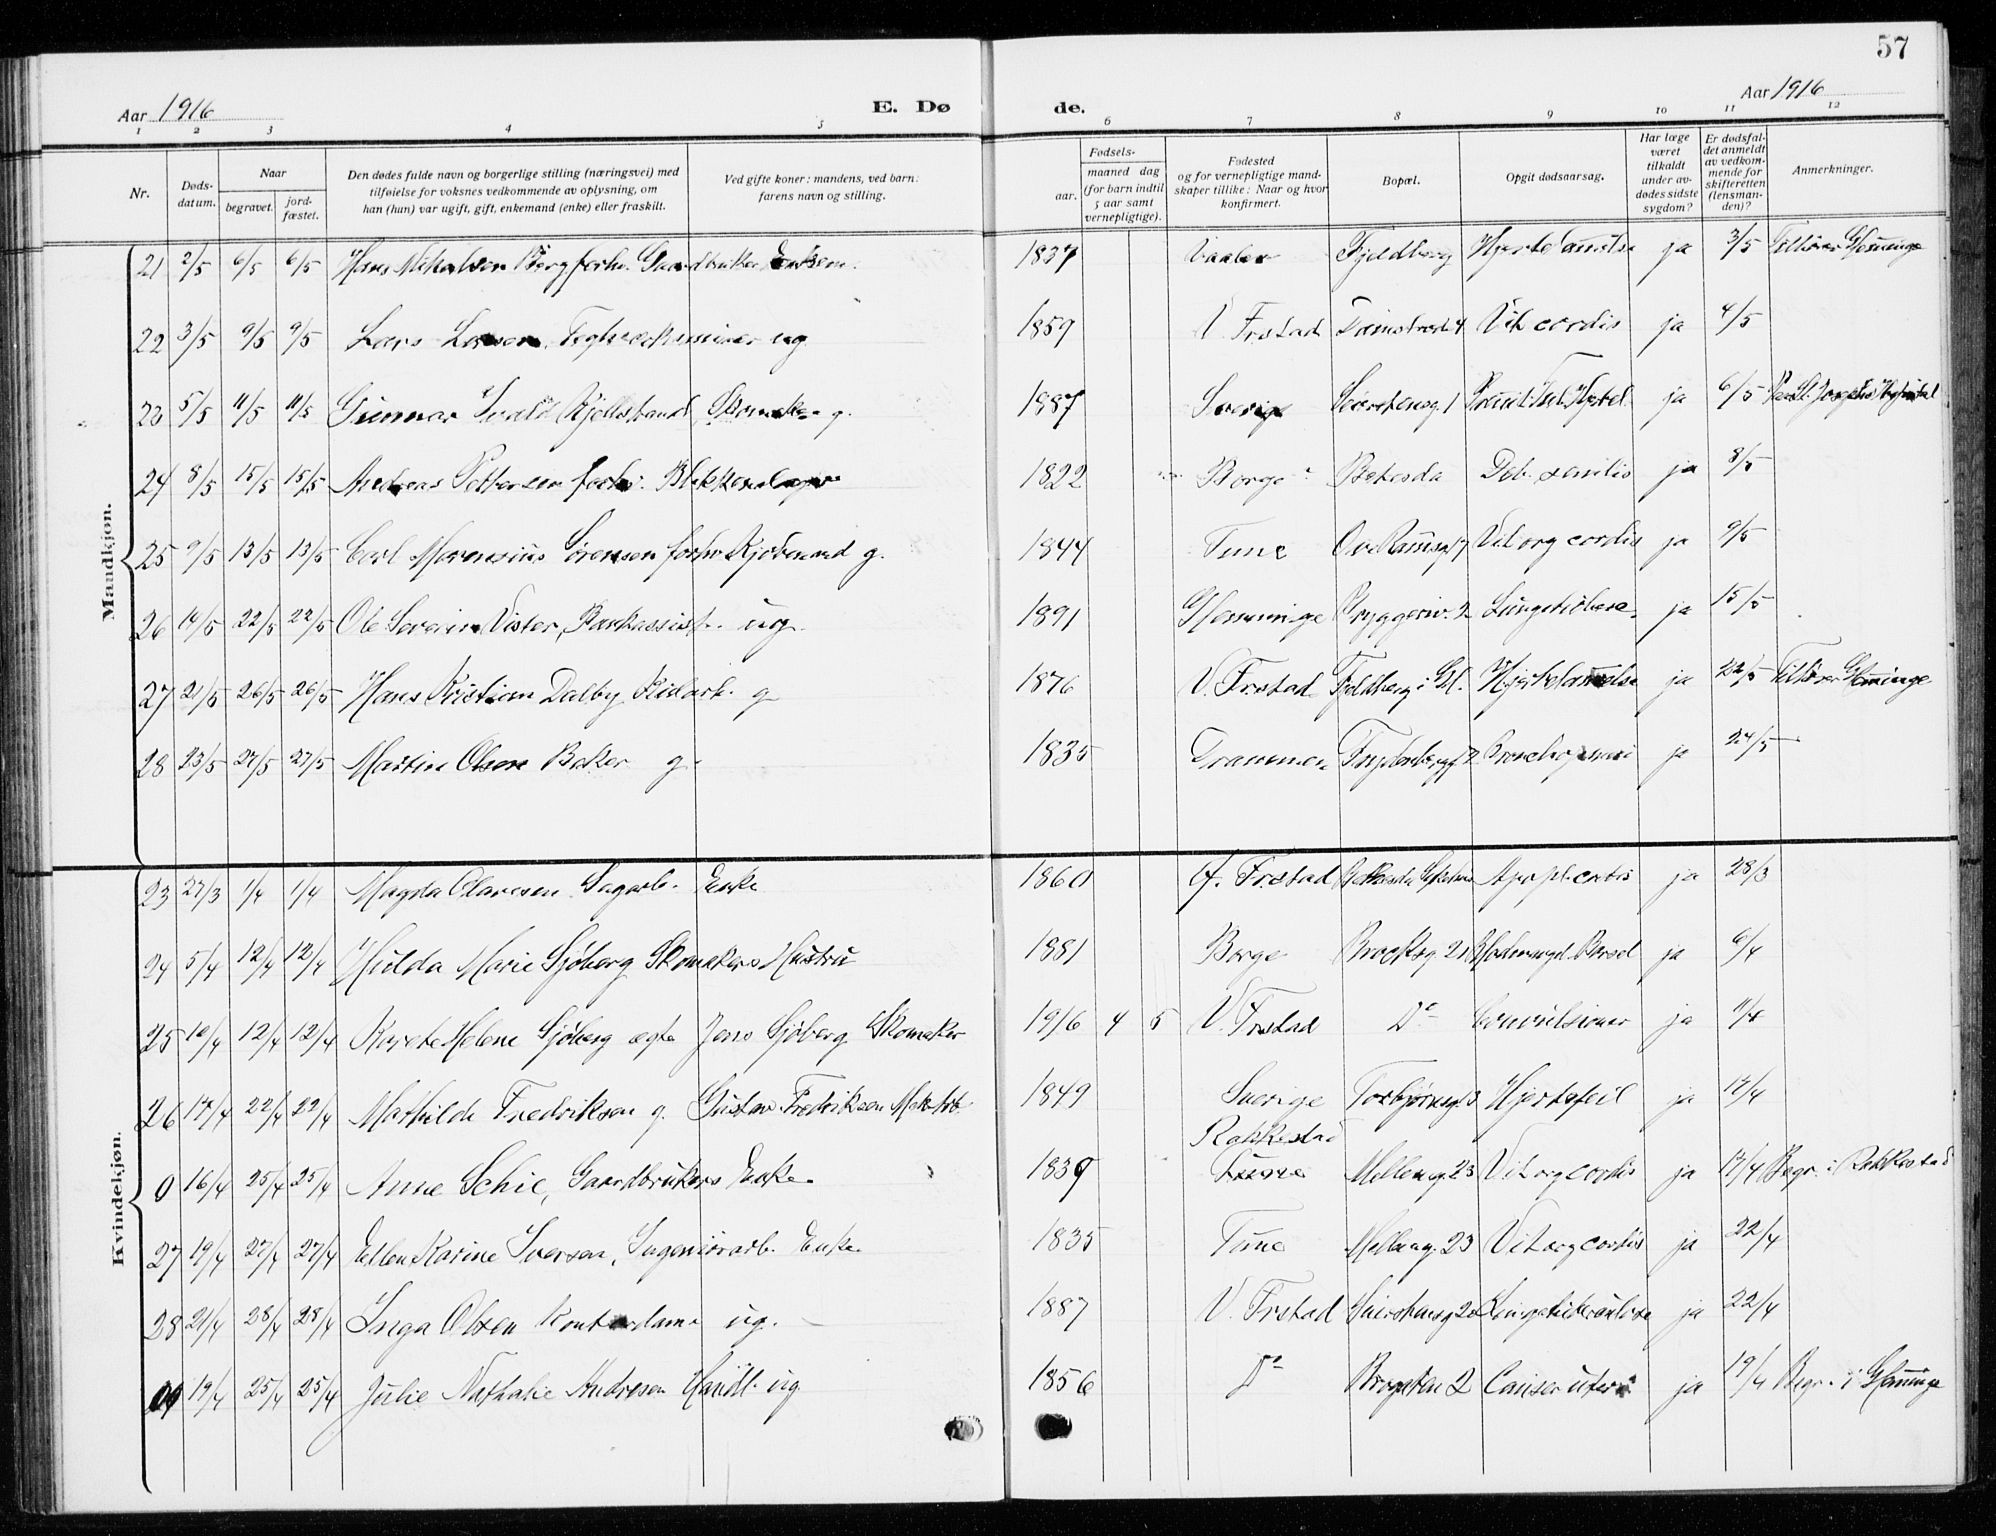 57
Aar 1916
E. Dø
de.
Aar 1916
1 2 3 4 5 6 7 8 9 10 11 12
Nr.
Døds-
datum.
Naar
begravet.
jord-
fæstet.
Den dødes fulde navn og borgerlige stilling (næringsvei) med
tilføielse for voksnes vedkommende av oplysning, om
han (hun) var ugift, gift, enkemand (enke) eller fraskilt.
Ved gifte koner: mandens, ved barn:
farens navn og stilling.
Fødsels-
aar.
maaned dag
(for barn indtil
5 aar samt
vernepligtige).
Fødested
og for vernepligtige mand-
skaper tillike: Naar og hvor
konfirmert.
Bopæl.
Opgit dødsaarsag.
Har læge
været
tilkaldt
under av-
dødes sidste
sygdom?
Er dødsfal-
det anmeldt
av vedkom-
mende for
skifteretten
(lensman-
den)?
Anmerkninger.
Maandkjøn.
21 2/5 6/5 6/5 Hans Mikalsen Berg forhv. Gaardbruker 1837 Vaaler Fjeldberg Hjertelamelse ja 3/5 Tilhører Glemminge
22 3/5 9/5 9/5 Lars Larsen ug 1859 V. Frstad Vit. cordis ja 4/5
23 5/5 11/5 11/5 Gunnar Kjellstrand, Skomaker g. 1887 Sverige ja 6/5
24 8/5 15/5 15/5 Andreas Pettersen forhv. 1822 Borge Betesda Deb. senilis ja 8/5
25 9/5 13/5 13/5 Carl Marensius Sørensen forhv. Kjøbmand g. 1844 Tune Ove Ramsg 17 Vit org cordis ja 9/5
26 14/5 22/5 22/5 Ole Severin Vister, Bankassist. ug. 1891 Glemminge Bryggeriv. 2 ja 15/5
27 21/5 26/5 26/5 Hans Kristian Dalby g 1876 V. Frstad Fjeldberg i Gl. Hjertelamelse ja 22/5 Tilhører Glemminge
28 23/5 27/5 27/5 Martin Olsen Baker g. 1835 Drammen ja 24/5
Kvindekjøn.
23 27/3 1/4 1/4 Magda Olavesen Sagarb. Enke 1860 Frstad ja 28/3
24 5/4 12/4 12/4 Hulda Marie Sjøberg Skomakers Hustru 1881 Borge ja 6/4
25 10/4 12/4 12/4 Helene Sjøberg ægte Jens Sjøberg Skomaker 1916 4 5 V. Frstad Do Convulsioner ja 11/4
26 14/4 22/4 22/4 Mathilde Fredriksen g. Gustav Fredriksen Mek. Arb. 1849 Sverige Torbjørnsg. 3 Hjertefeil ja 17/4
Rakkestad
0 16/4 25/4 25/4 Anne Schie, Gaardbrukers Enke. 1839 Tune Mølleng. 23 Vit org cordis ja 17/4 Begr. i Rakkestad
27 19/4 27/4 27/4 Ellen Karine Iversen, Enke. 1835 Tune Mølleng. 23 Vit org cordis ja 22/4
28 21/4 28/4 28/4 Inga Olsen Kontordame ug. 1887 V. Frstad ja 22/4
19/4 25/4 25/4 Julie Nathalie Andresen Handl. ug. 1856 Do 2 Canser uteri ja 19/4 Begr. i Glemminge